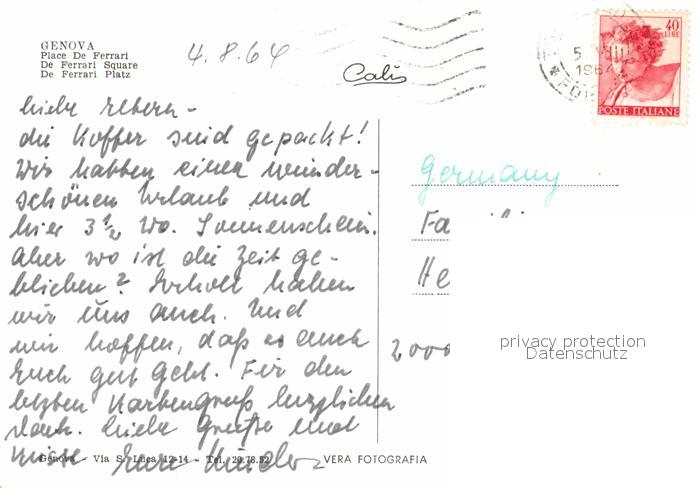 GENOVA
Place De Ferrari
De Ferrari Square
De Ferrari Platz
4.8.64
Cali
40
LIRE
5 VIII
196
POSTE ITALIANE
Liebe Eltern -
die Koffer sind gepackt!
Wir hatten einen wunder-
schönen Urlaub und
hier 3 1/2 Wo. Sonnenschein.
Aber wo ist die Zeit ge-
blieben? Erholt haben
wir uns auch. Und
wir hoffen, daß es auch
Euch gut geht. Für den
letzten Kartengruß herzlichen
Dank. Liebe Grüße und
Küsse Eure Kinder
Germany
Fa
He
2000
privacy protection
Datenschutz
Genova - Via S. Luca 12-14 - Tel. 20.78.52
VERA FOTOGRAFIA